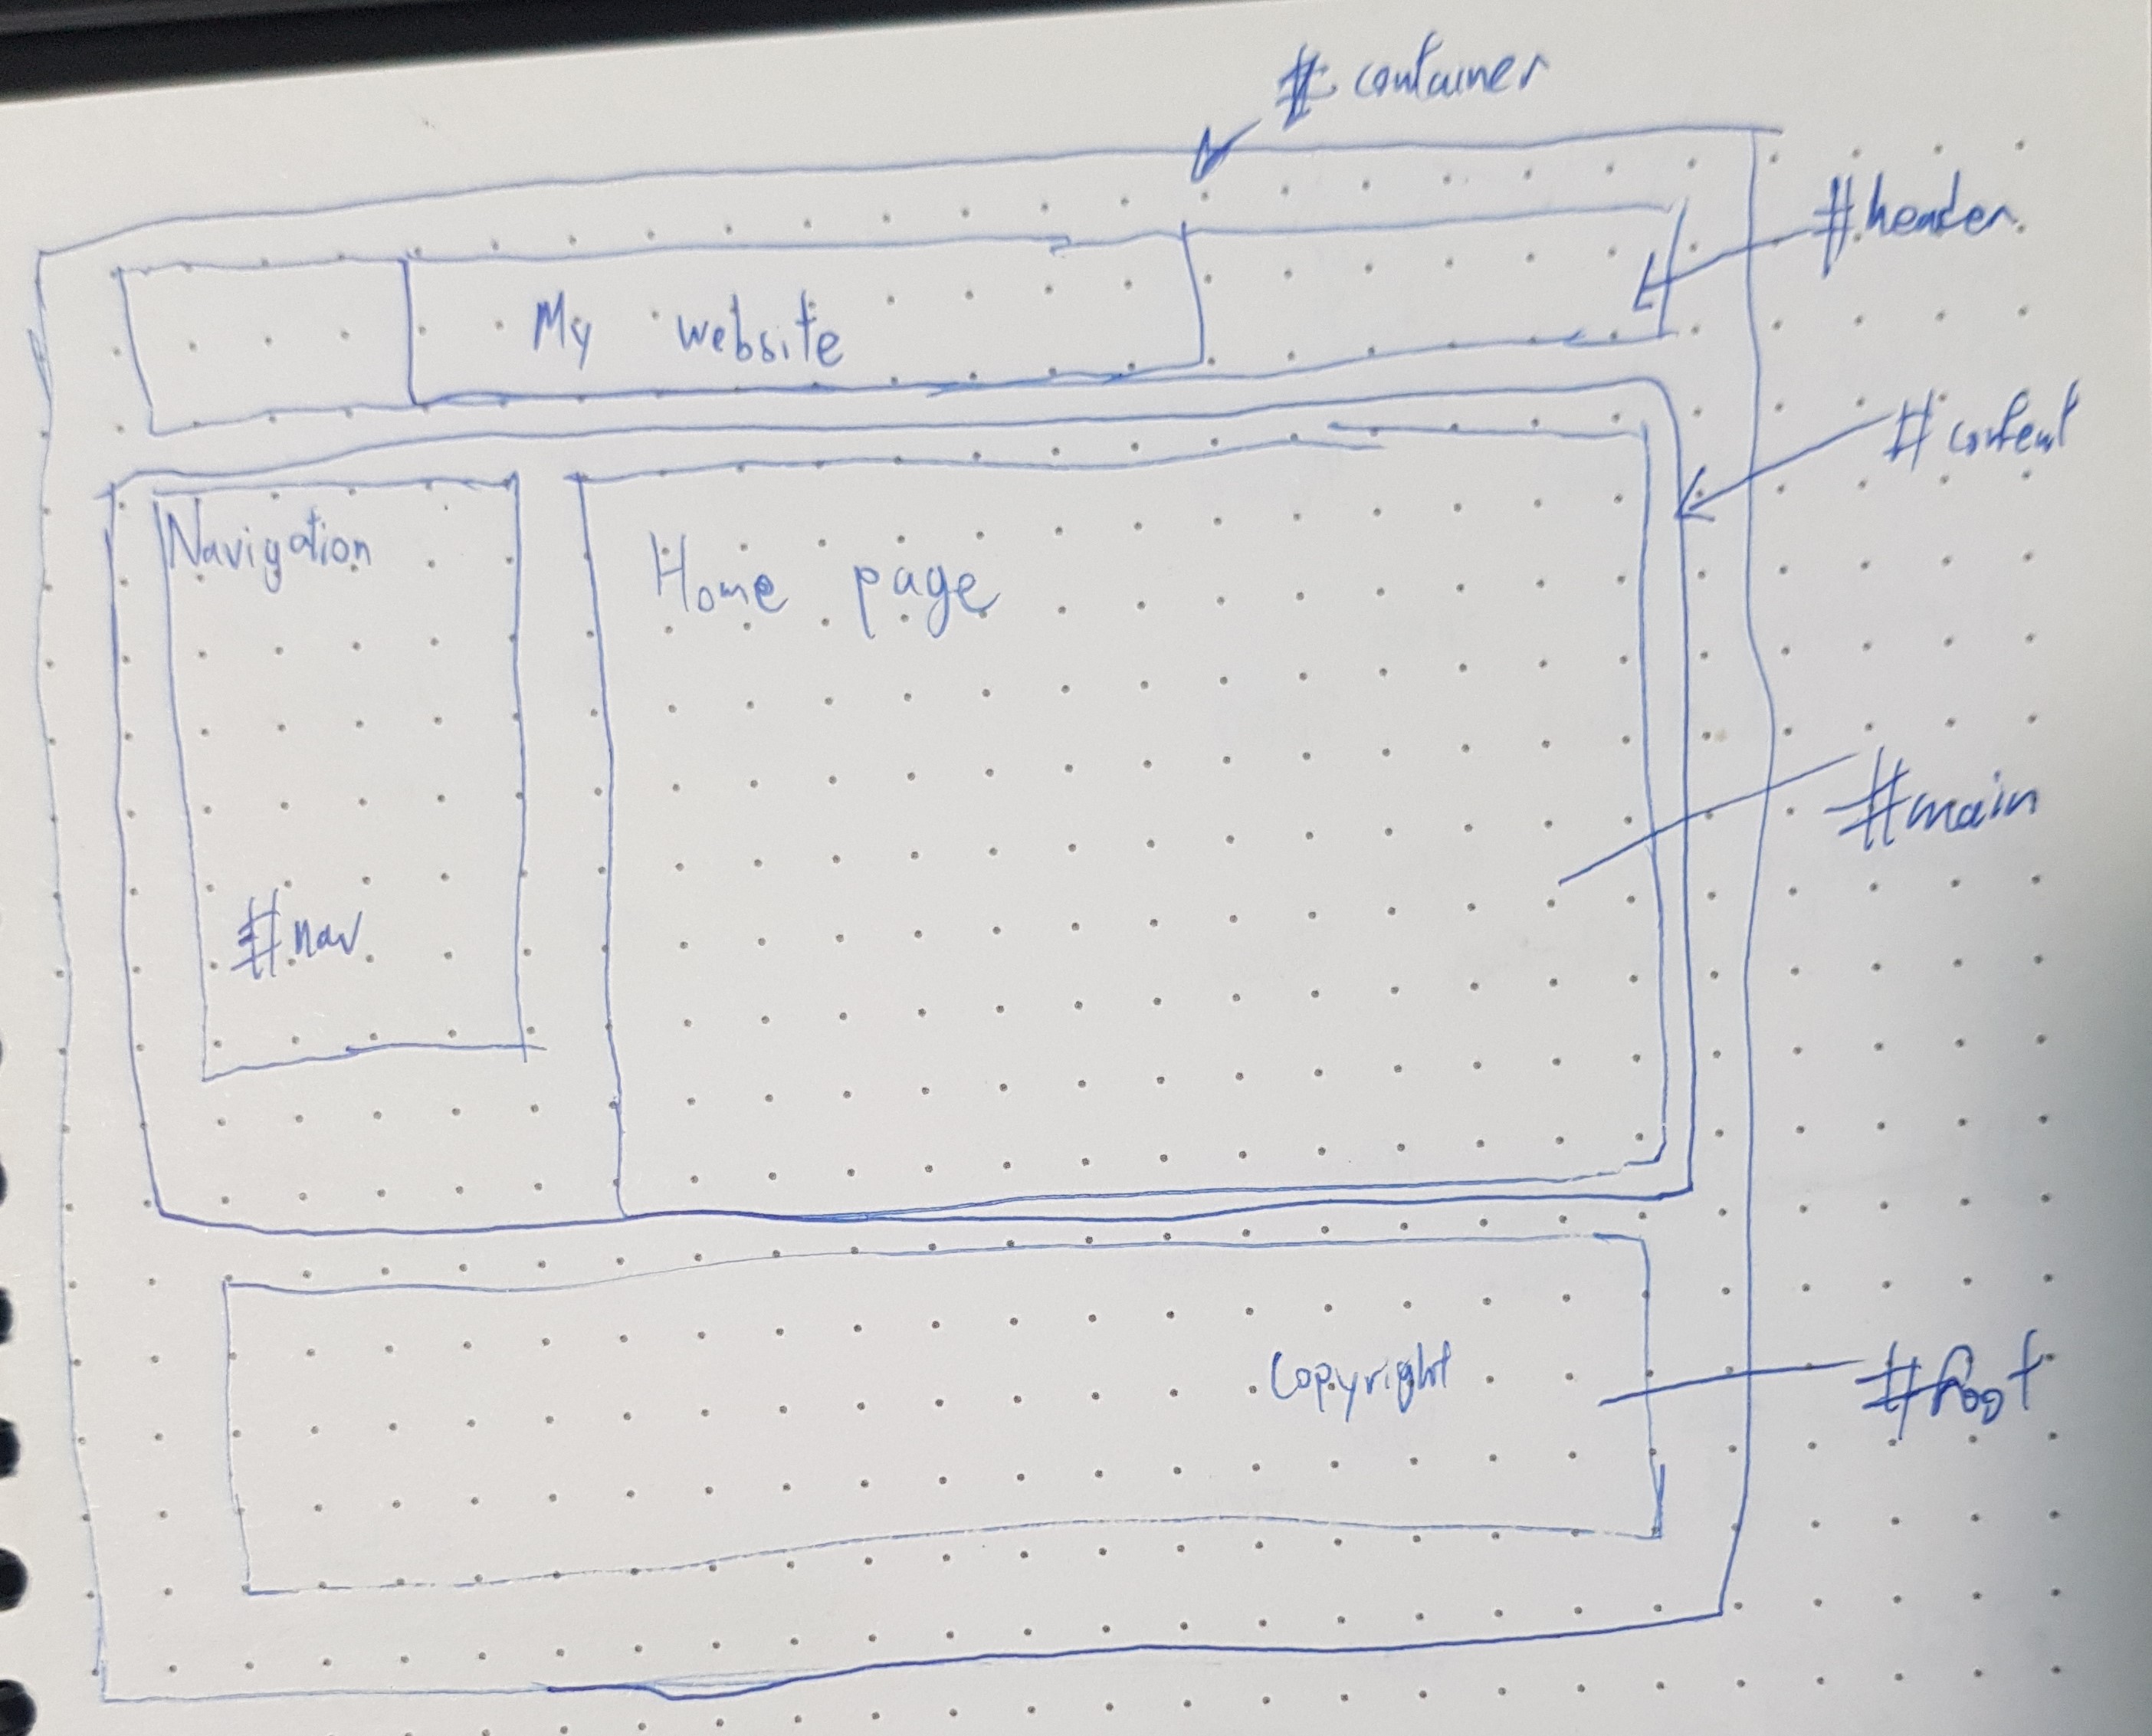 #container
#header
My website
#content
Navigation
Home page
#main
#nav
Copyright
#foot